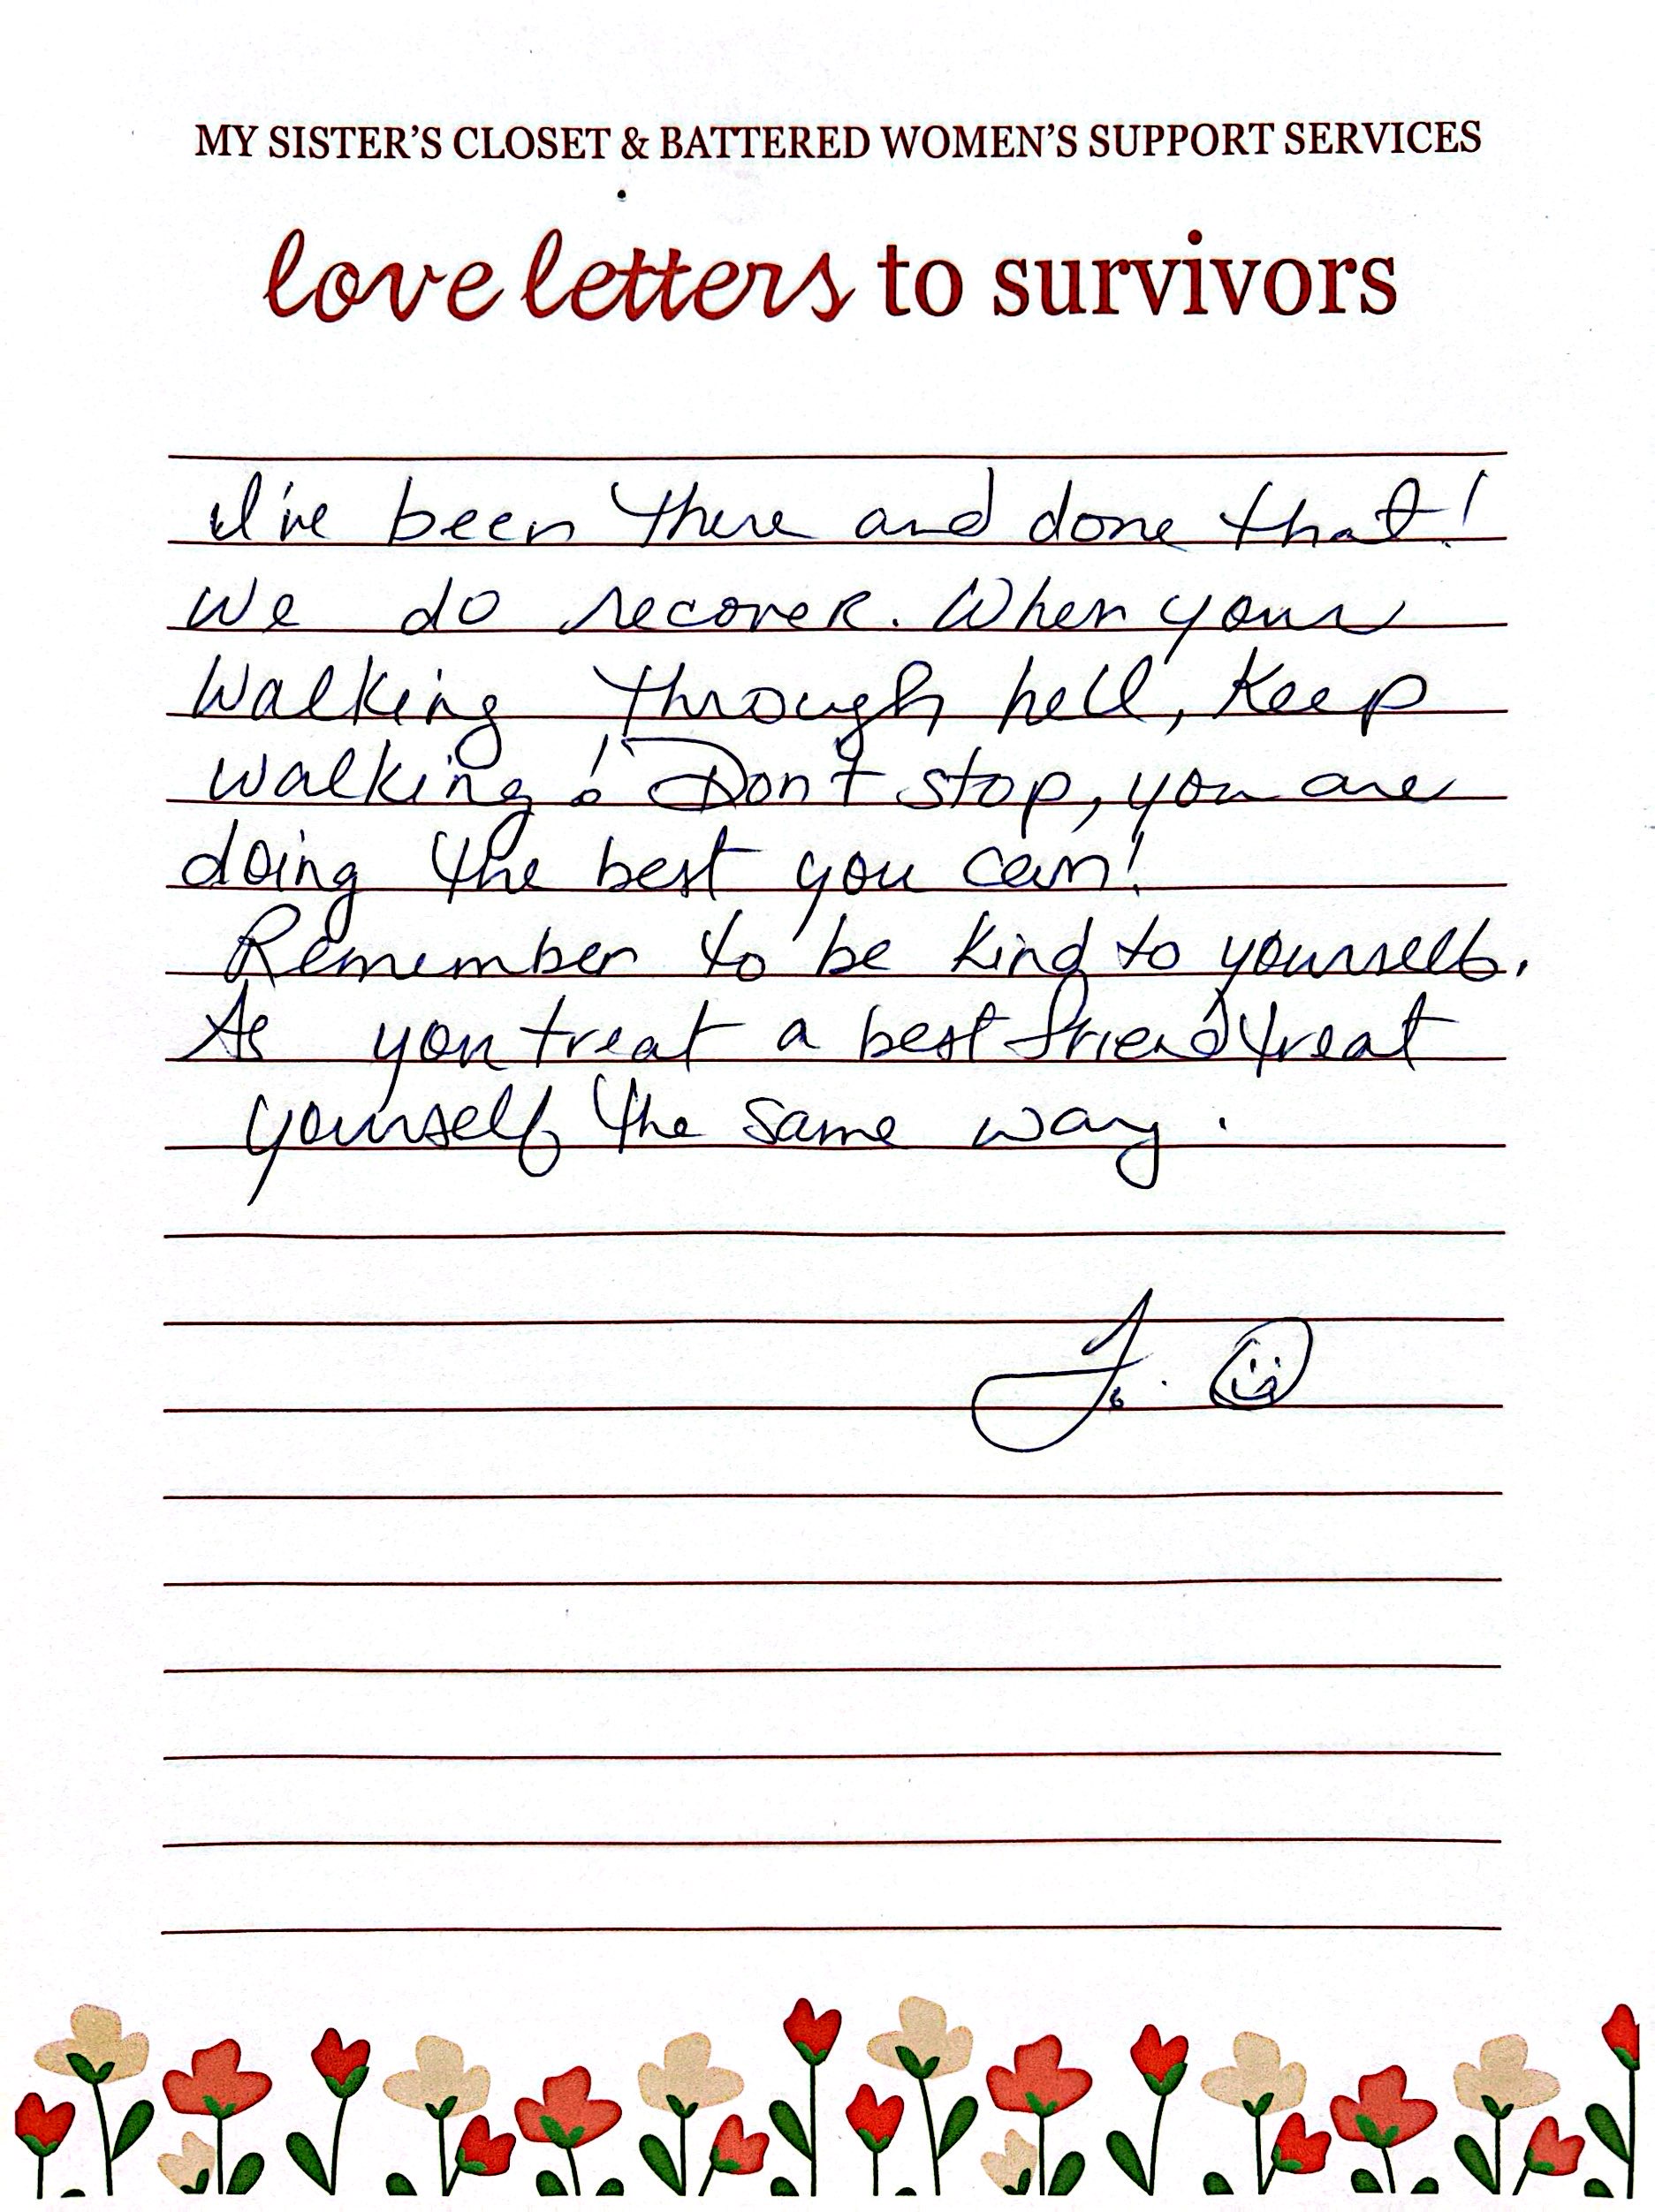 MY SISTER'S CLOSET & BATTERED WOMEN'S SUPPORT SERVICES
love letters to survivors
I've been there and done that!
We do recover. When your
walking through hell, keep
walking! Don't stop, you are
doing the best you can!
Remember to be kind to yourself.
As you treat a best friend treat
yourself the same way.